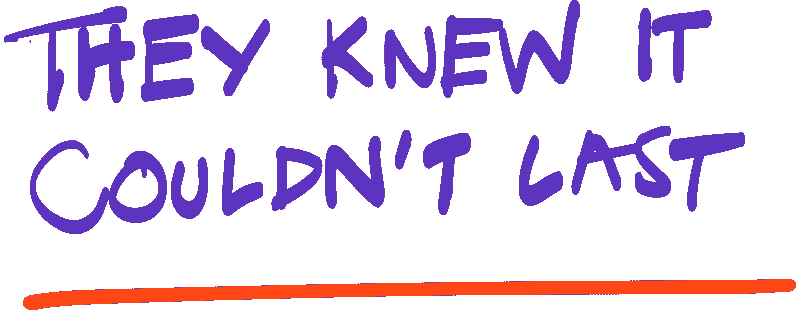 THEY KNEW IT
COULDN'T LAST